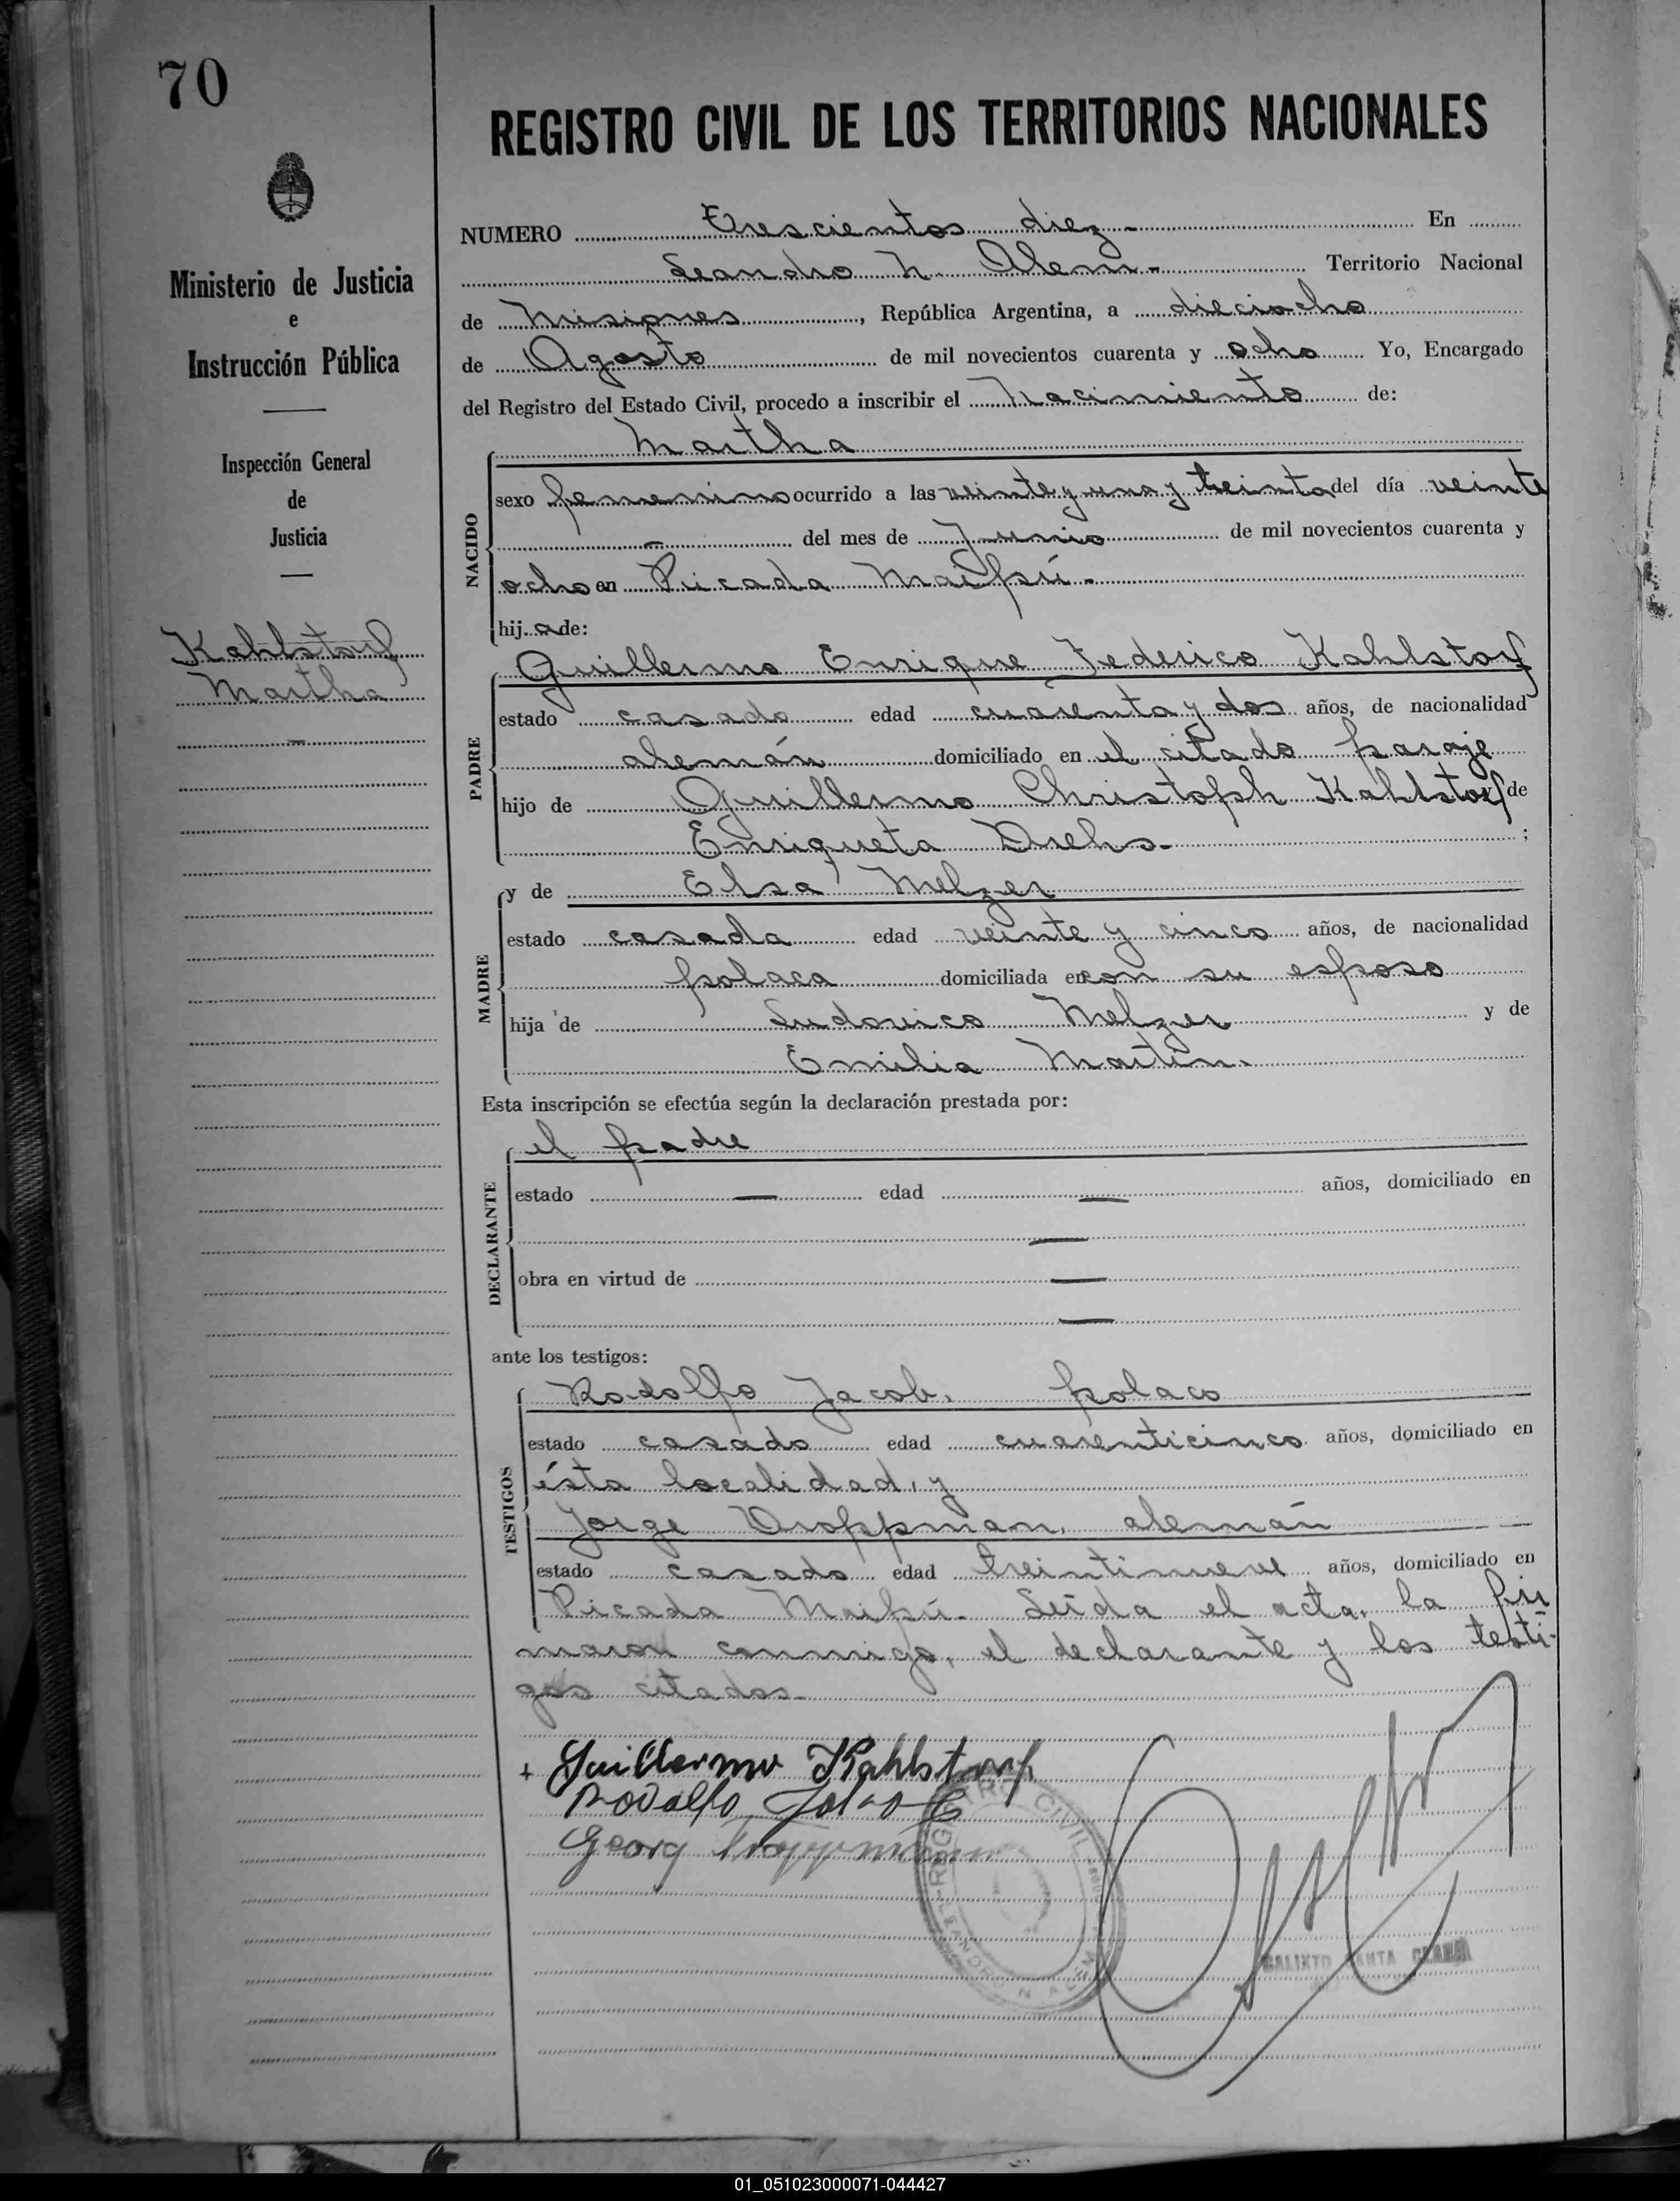 70
REGISTRO CIVIL DE LOS TERRITORIOS NACIONALES
Ministerio de Justicia
e
Instrucción Pública
Inspección General
de
Justicia
Kahlstorf
Martha
NUMERO Trescientos diez.- En
Leandro N. Alem.- Territorio Nacional
de Misiones, República Argentina, a dieciocho
de Agosto de mil novecientos cuarenta y ocho Yo, Encargado
del Registro del Estado Civil, procedo a inscribir el Nacimiento de:
Martha
NACIDO
sexo femenino ocurrido a las veinte y una y treinta del día veinte
- del mes de Junio de mil novecientos cuarenta y
ocho en Picada Maipú.-
hija de:
PADRE
Guillermo Enrique Federico Kahlstorf
estado casado edad cuarenta y dos años, de nacionalidad
alemán domiciliado en el citado paraje
hijo de Guillermo Christoph Kahlstorf de
Enriqueta Drehs.- ;
MADRE
y de Elsa Melzer
estado casada edad veinte y cinco años, de nacionalidad
polaca domiciliada en con su esposo
hija de Ludovico Melzer y de
Emilia Martin.
Esta inscripción se efectúa según la declaración prestada por:
DECLARANTE
el padre
estado — edad — años, domiciliado en
—
obra en virtud de —
—
ante los testigos:
TESTIGOS
Rodolfo Jacob, polaco
estado casado edad cuarenticinco años, domiciliado en
ésta localidad, y
Jorge Droppman, alemán
estado casado edad treintinueve años, domiciliado en
Picada Maipú.- Leída el acta, la fir
maron conmigo, el declarante y los testi-
gos citados.-
+ Guillermo Kahlstorf
Rodolfo Jakob
Georg Troppmann
REGISTRO CIVIL
LEANDRO N ALEM
CALIXTO SANTA CLARA
01_051023000071-044427